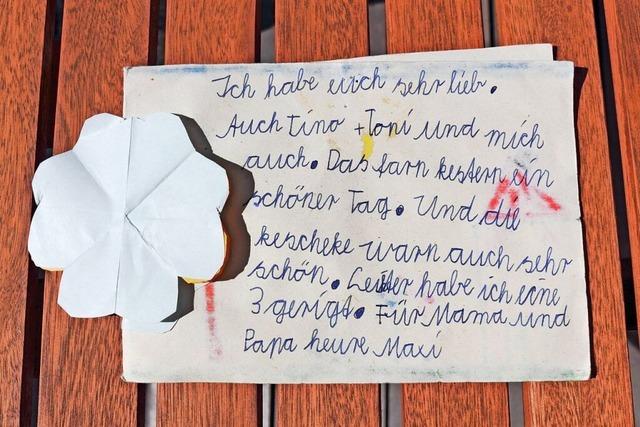 Ich habe euch sehr lieb.
Auch Tino + Toni und mich
auch. Das farn kestern ein
schöner Tag. Und die
kescheke warn auch sehr
schön. Leiter habe ich eine
3 gerigt. Für Mama und
Papa heure Maxi